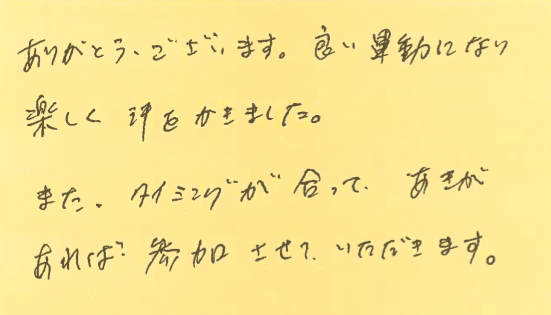 ありがとうございます。良い運動になり
楽しく 汗をかきました。
また、タイミングが合って、あきが
あれば 参加させていただきます。